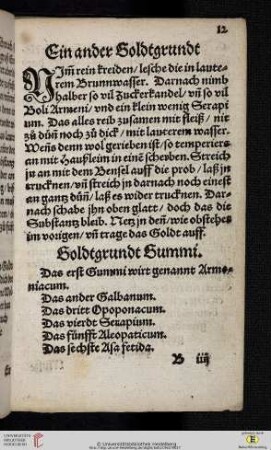 12
Ein ander Goldtgrundt
NJm̃ rein kreiden/ lesche die in laute-
rem Brunnwasser. Darnach nimb
halber so vil Zuckerkandel/ vñ so vil
Boli Armeni/ vnd ein klein wenig Serapi
um. Das alles reib zusamen mit fleiß/ nit
zů důñ noch zů dick/ mit lauterem wasser.
Weñs denn wol gerieben ist/ so temperiers
an mit Haußleim in eine scherben. Streich
jn an mit dem Bensel auff die prob/ laß jn
trucknen/ vñ streich jn darnach noch einest
an gantz důñ/ laß es wider trucknen. Dar-
nach schabe jhn oben glatt/ doch das die
Substantz bleib. Netz jn deñ/ wie obstehet
im vorigen/ vñ trage das Goldt auff.
Goldtgrundt Gummi.
Das erst Gummi wirt genannt Armo-
niacum.
Das ander Galbanum.
Das dritt Opoponacum.
Das vierdt Serapium.
Das fünfft Aleopaticum.
Das sechste Asa fetida.
B iiij
UNIVERSITÄTS-
BIBLIOTHEK
HEIDELBERG
© Universitätsbibliothek Heidelberg